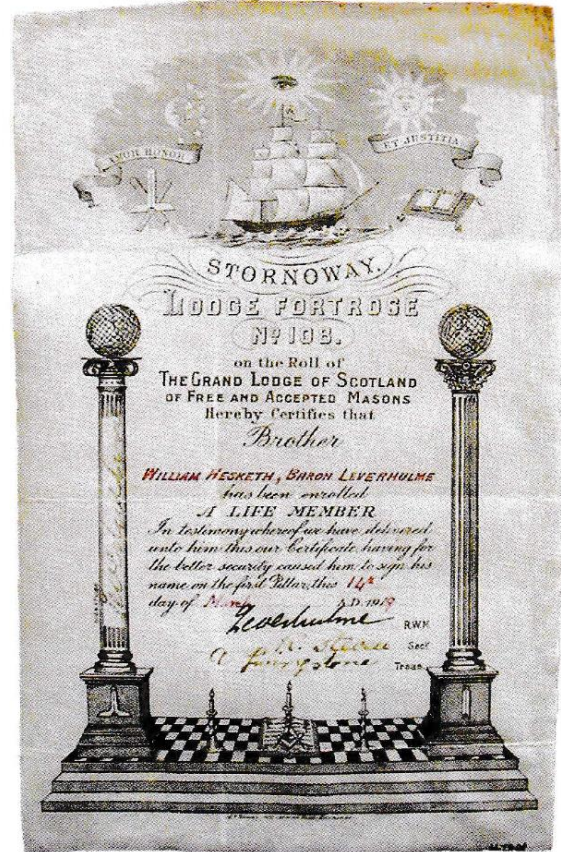 AMOR HONOR
ET JUSTITIA
STORNOWAY.
LODGE FORTROSE
Nº 108.
on the Roll of
THE GRAND LODGE OF SCOTLAND
OF FREE AND ACCEPTED MASONS
Hereby Certifies that
Brother
WILLIAM HESKETH, BARON LEVERHULME
has been enrolled
A LIFE MEMBER
In testimony whereof we have delivered
unto him this our Certificate, having for
the better security caused him to sign his
name on the first Pillar, this 14th
day of March A.D. 1919
Leverhulme R.W.M.
Secy
A Livingstone Treas.